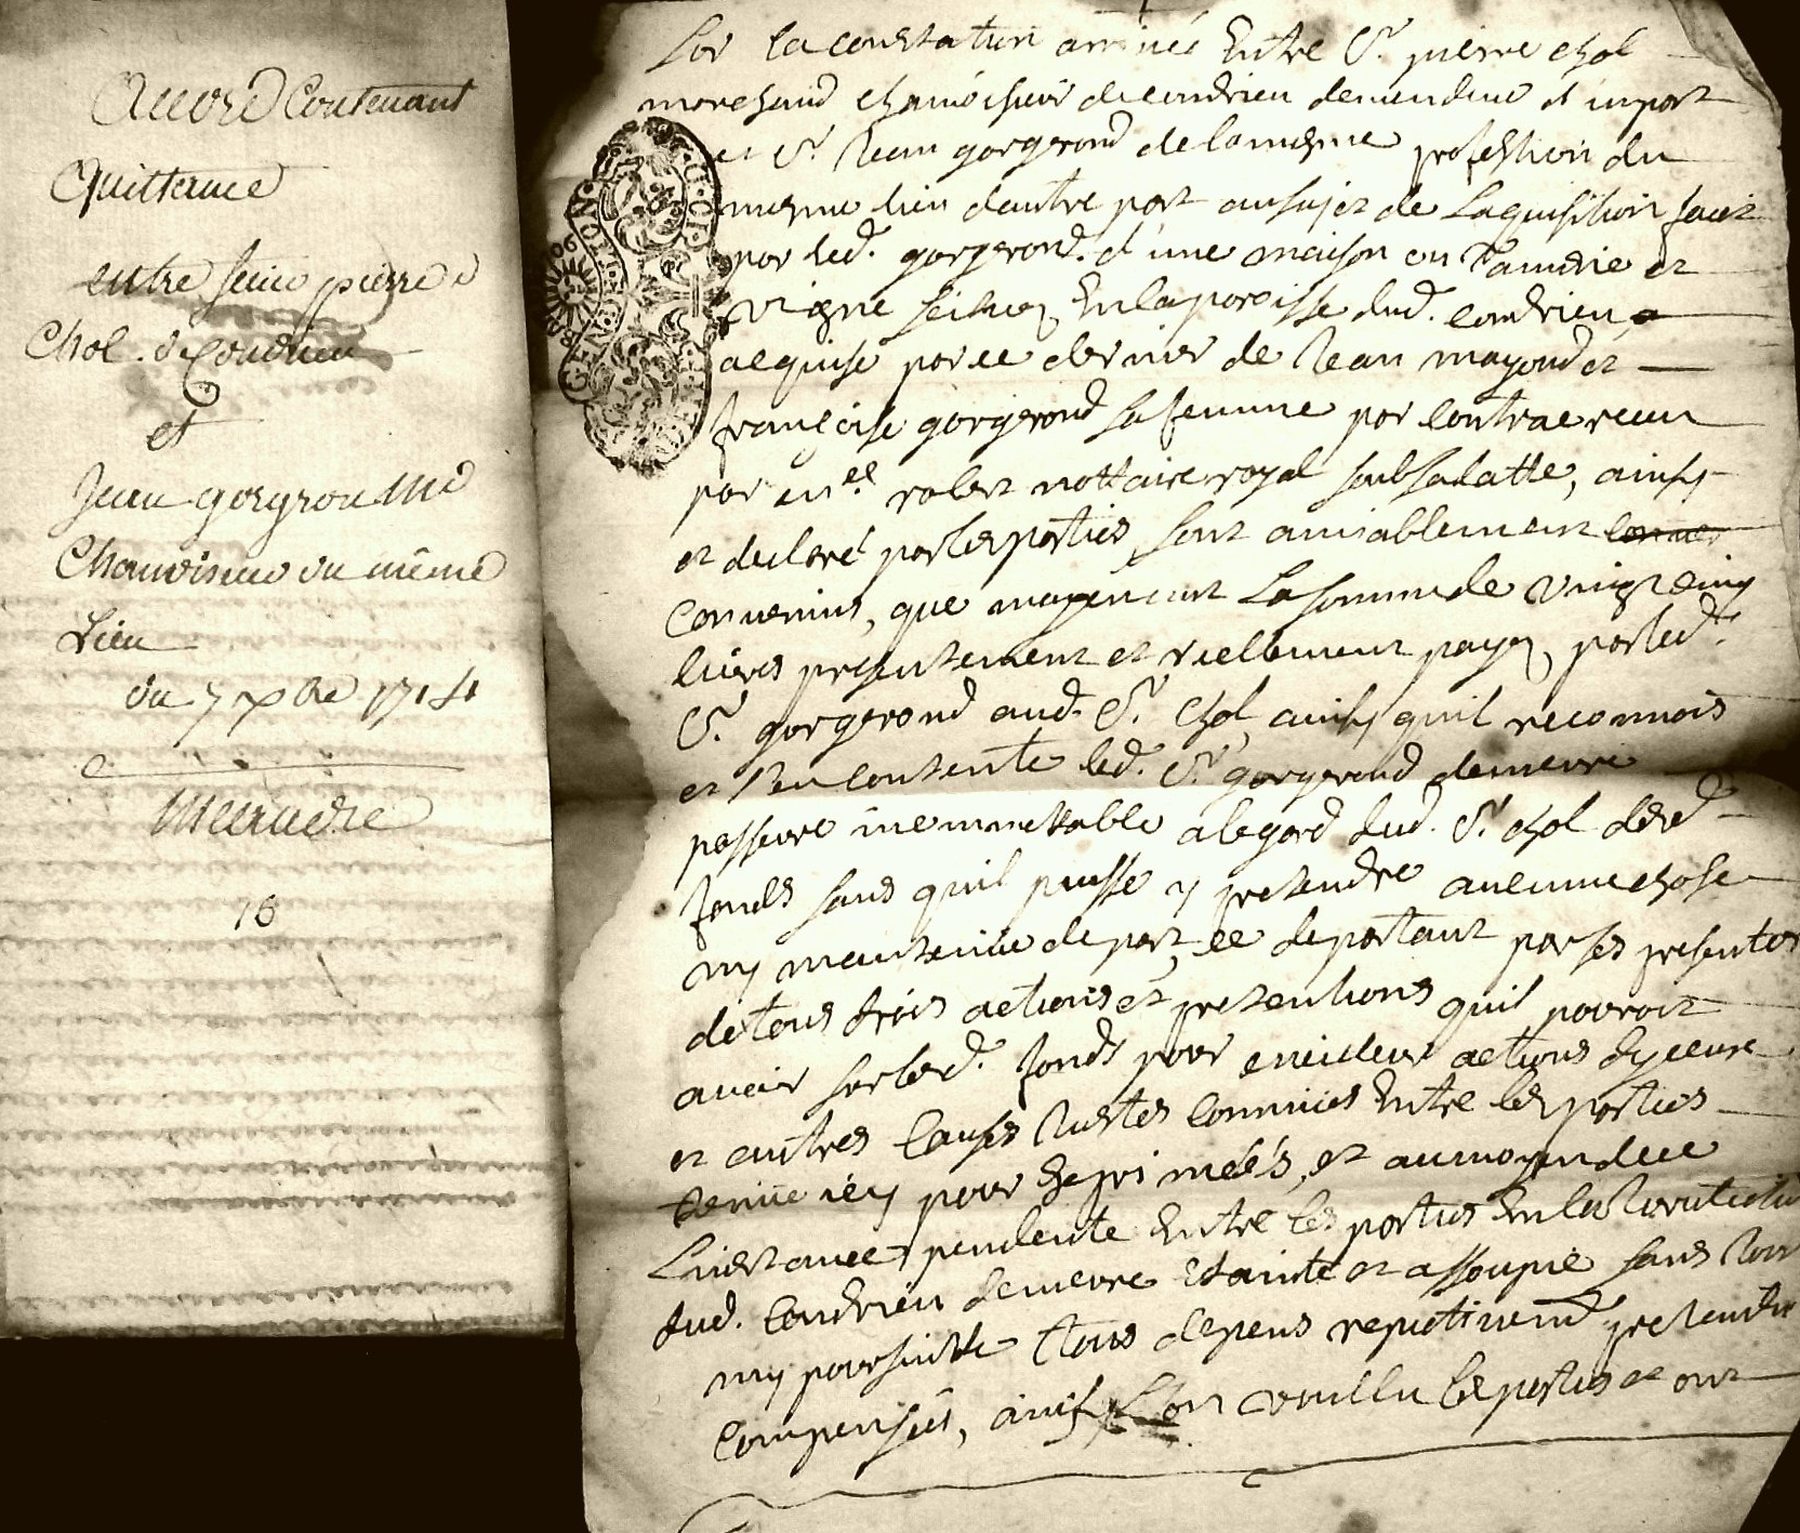 Accord Contenant
Quittance
entre sieur pierre
Chol de Condrieu
et
Jean gorgeron md
Chamoiseur du même
Lieu
du 7 xbre 1714
18
Sur la contestation arrivée Entre Sr. pierre chol
marchand chamoiseur de condrieu demendeur d'unpart
et Sr. Jean gorgerond de la mesme profession du
mesme lieu dautre part au sujet de Laquisition faict
par led. gorgerond. d'une maison ou Tannerie et
vigne scituez En la paroisse dud. condrieu
acquise par ce dernier de Jean mayoud et
françoise gorgerond sa femme par contrac receu
par me robert nottaire royal soub sa datte, ainsy
et declaré par les parties, sont amiablement
convenus, que moyennant La somme de vingt cinq
livres presentement et reellement payez par led.
Sr. gorgerond aud. Sr. chol, ainsy quil reconnois
et s'en contente led. Sr gorgerond demeure
possesseur incommuttable a legard dud. Sr. chol desd.
fonds sans quil puisse y pretendre aucune chose
ny maintenüe de part, ce departant par ses presentes
de tous drois actions et pretentions quil pourroit
avoir sur lesd. fonds pour actions
et autres causes Justes connues Entre les parties
tenüe icy pour Exprimées, et au moyen de ce
Linstance pendente Entre les parties En la
dud. Condrieu demeure Etainte et assoupie sans
ny poursuitte tous depens repectivemd pretendu
compensés, ainsy Lon voullu les parties et ont